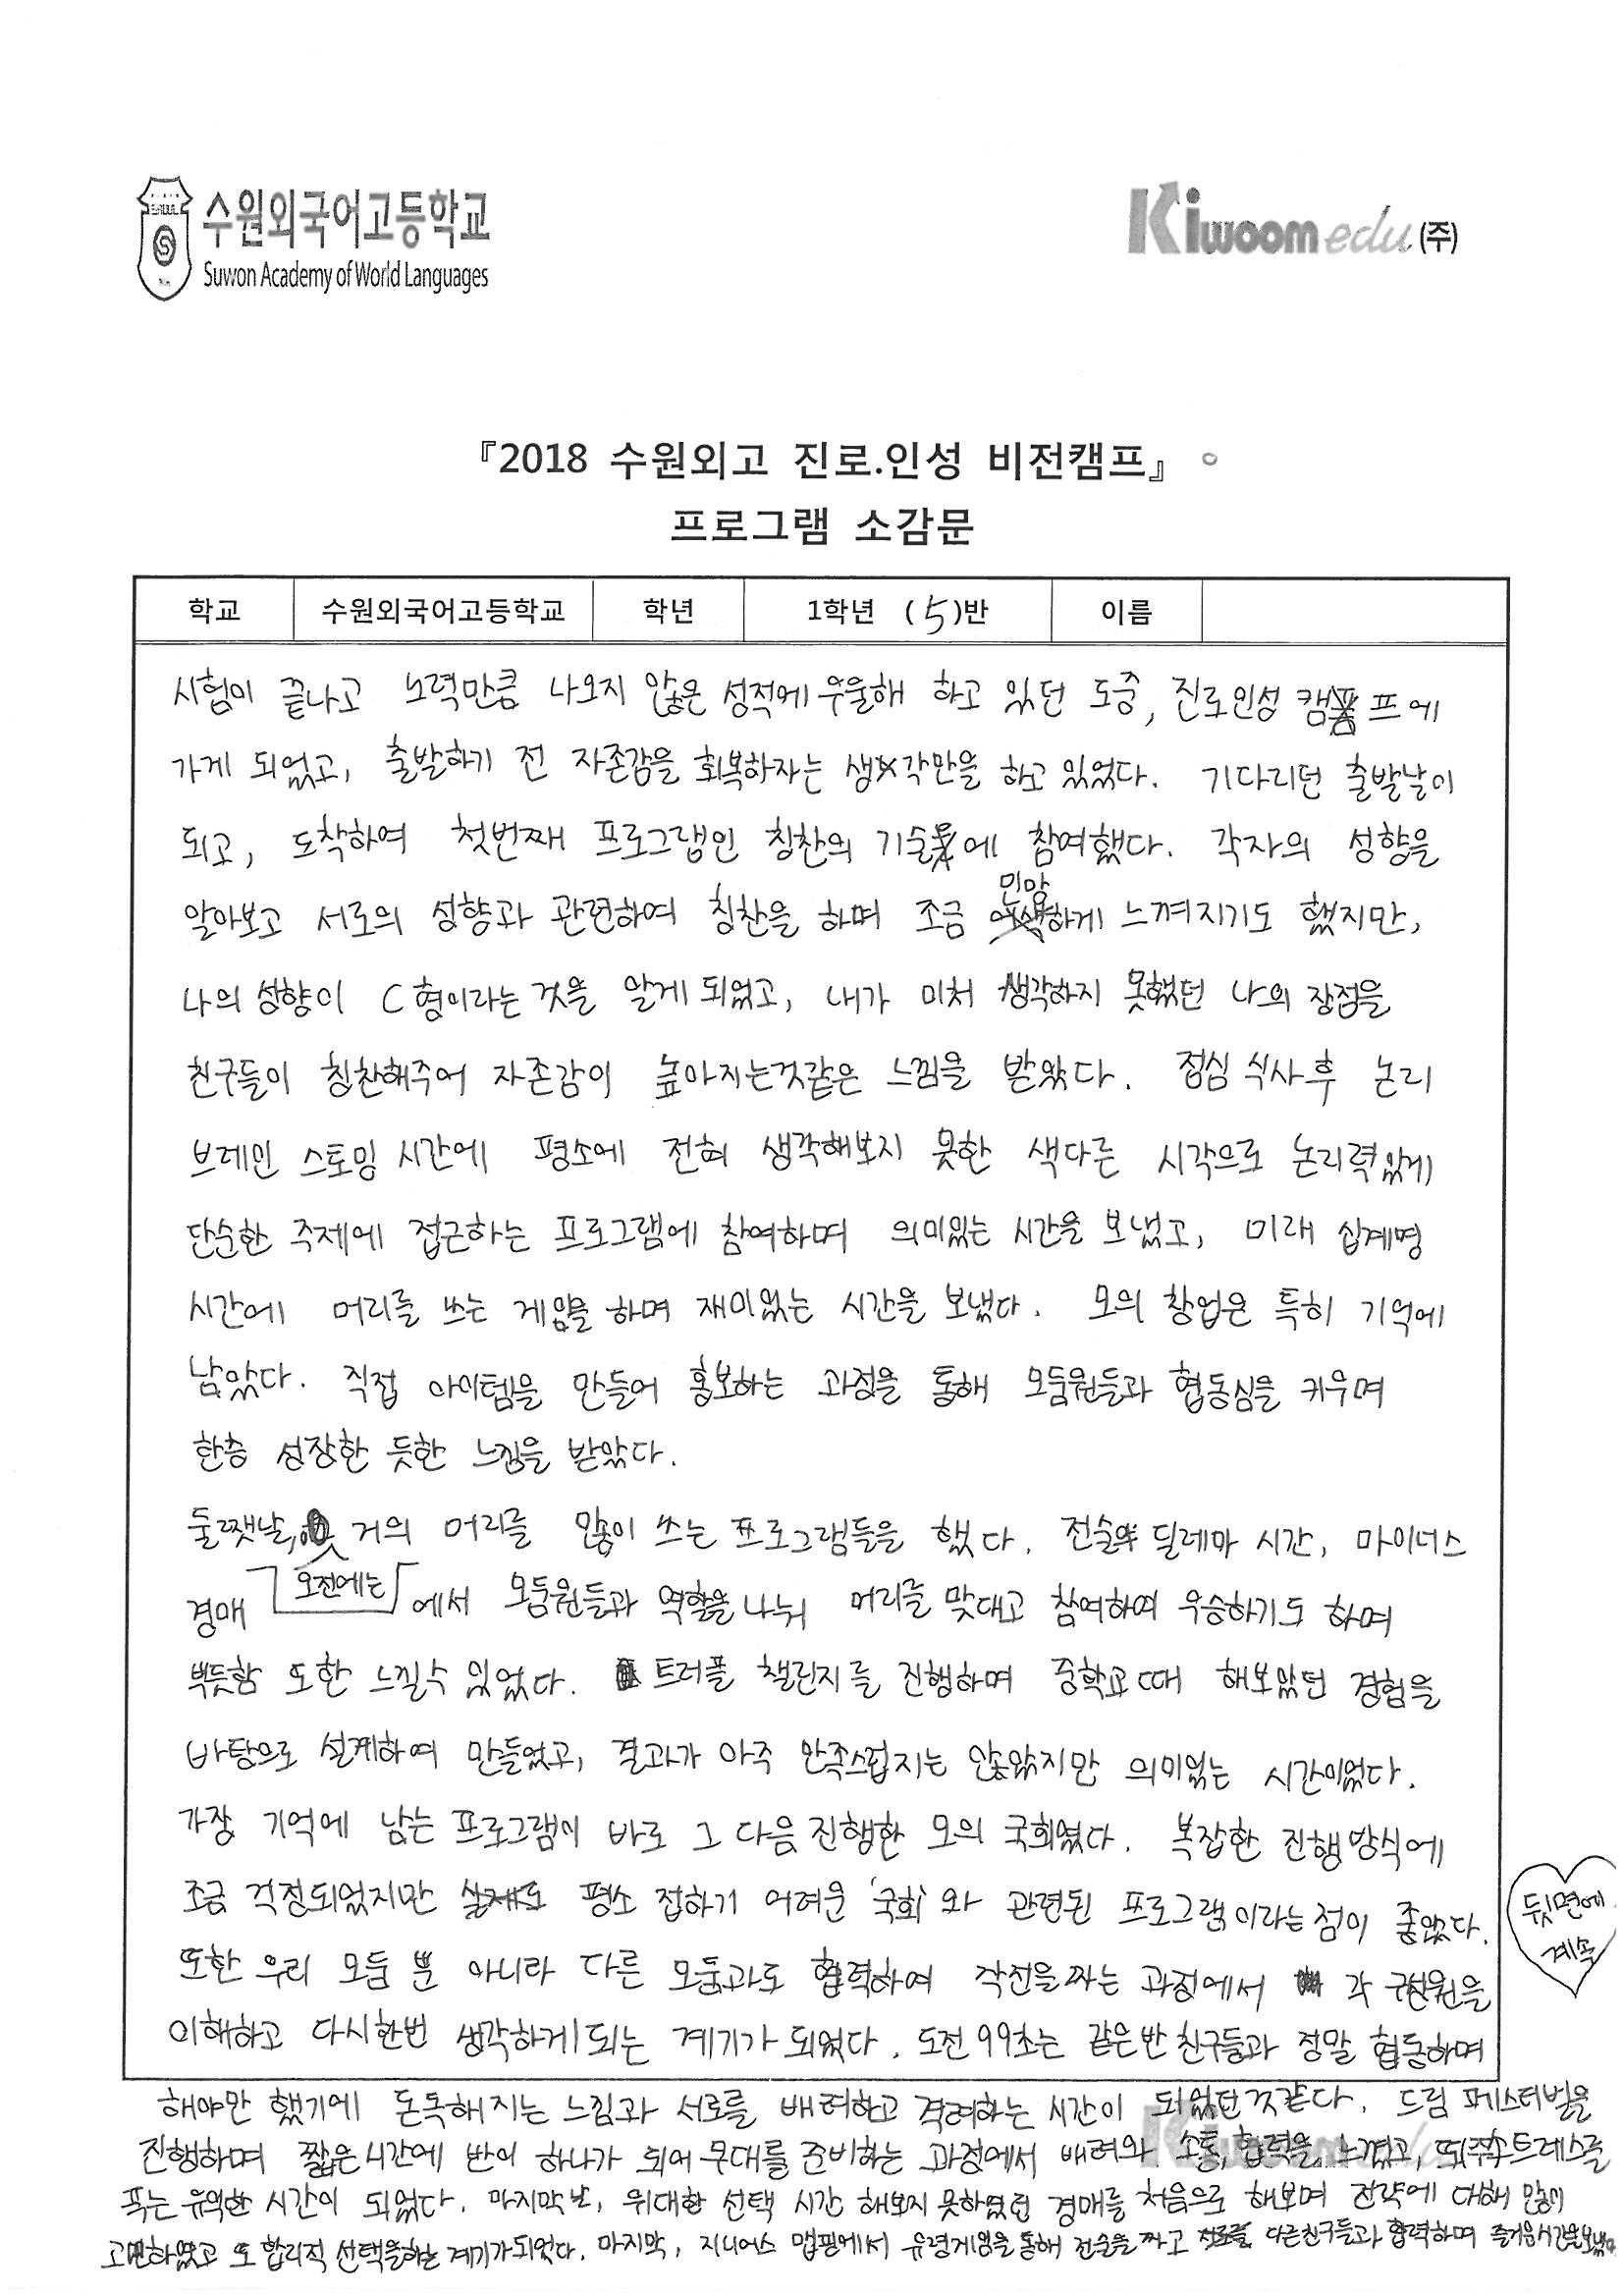 수원외국어고등학교
Suwon Academy of World Languages
Kiwoom edu (주)
『2018 수원외고 진로.인성 비전캠프』
프로그램 소감문
학교 수원외국어고등학교 학년 1학년 (5)반 이름
시험이 끝나고 노력만큼 나오지 않은 성적에 우울해 하고 있던 도중, 진로인성 캠프에
가게 되었고, 출발하기 전 자존감을 회복하자는 생각만을 하고 있었다. 기다리던 출발날이
되고, 도착하여 첫번째 프로그램인 칭찬의 기술에 참여했다. 각자의 성향을
알아보고 서로의 성향과 관련하여 칭찬을 하며 조금 민망하게 느껴지기도 했지만,
나의 성향이 C형이라는 것을 알게 되었고, 내가 미처 생각하지 못했던 나의 장점을
친구들이 칭찬해주어 자존감이 높아지는것같은 느낌을 받았다. 점심 식사 후 논리
브레인 스토밍 시간에 평소에 전혀 생각해보지 못한 색다른 시각으로 논리력있게
단순한 주제에 접근하는 프로그램에 참여하며 의미있는 시간을 보냈고, 미래 십계명
시간에 머리를 쓰는 게임을 하며 재미있는 시간을 보냈다. 모의 창업은 특히 기억에
남았다. 직접 아이템을 만들어 홍보하는 과정을 통해 모둠원들과 협동심을 키우며
한층 성장한 듯한 느낌을 받았다.
둘쨋날, 오전에는 거의 머리를 많이 쓰는 프로그램들을 했다. 전술 딜레마 시간, 마이너스
경매 에서 모둠원들과 역할을 나눠 머리를 맞대고 참여하여 우승하기도 하며
뿌듯함 또한 느낄수 있었다. 트러플 챌린지를 진행하며 중학교 때 해보았던 경험을
바탕으로 설계하여 만들었고, 결과가 아주 만족스럽지는 않았지만 의미있는 시간이었다.
가장 기억에 남는 프로그램이 바로 그 다음 진행한 모의 국회였다. 복잡한 진행방식에
조금 걱정되었지만 평소 접하기 어려운 '국회'와 관련된 프로그램이라는 점이 좋았다.
또한 우리 모둠 뿐 아니라 다른 모둠과도 협력하여 작전을 짜는 과정에서 각 구성원을
이해하고 다시한번 생각하게 되는 계기가 되었다. 도전 99초는 같은반 친구들과 정말 협동하며
해야만 했기에 돈독해지는 느낌과 서로를 배려하고 격려하는 시간이 되었던것같다. 드림 페스티벌을
진행하며 짧은시간에 반이 하나가 되어 무대를 준비하는 과정에서 배려와 소통, 협력을 느꼈고, 스트레스를
푸는 유익한 시간이 되었다. 마지막 날, 위대한 선택 시간 해보지 못하였던 경매를 처음으로 해보며 전략에 대해 많이
고민하였고 또 합리적 선택을하는 계기가되었다. 마지막, 지니어스 맵핑에서 유령게임을통해 전술을 짜고 다른친구들과 협력하며 즐거운시간을보냈다
뒷면에
계속